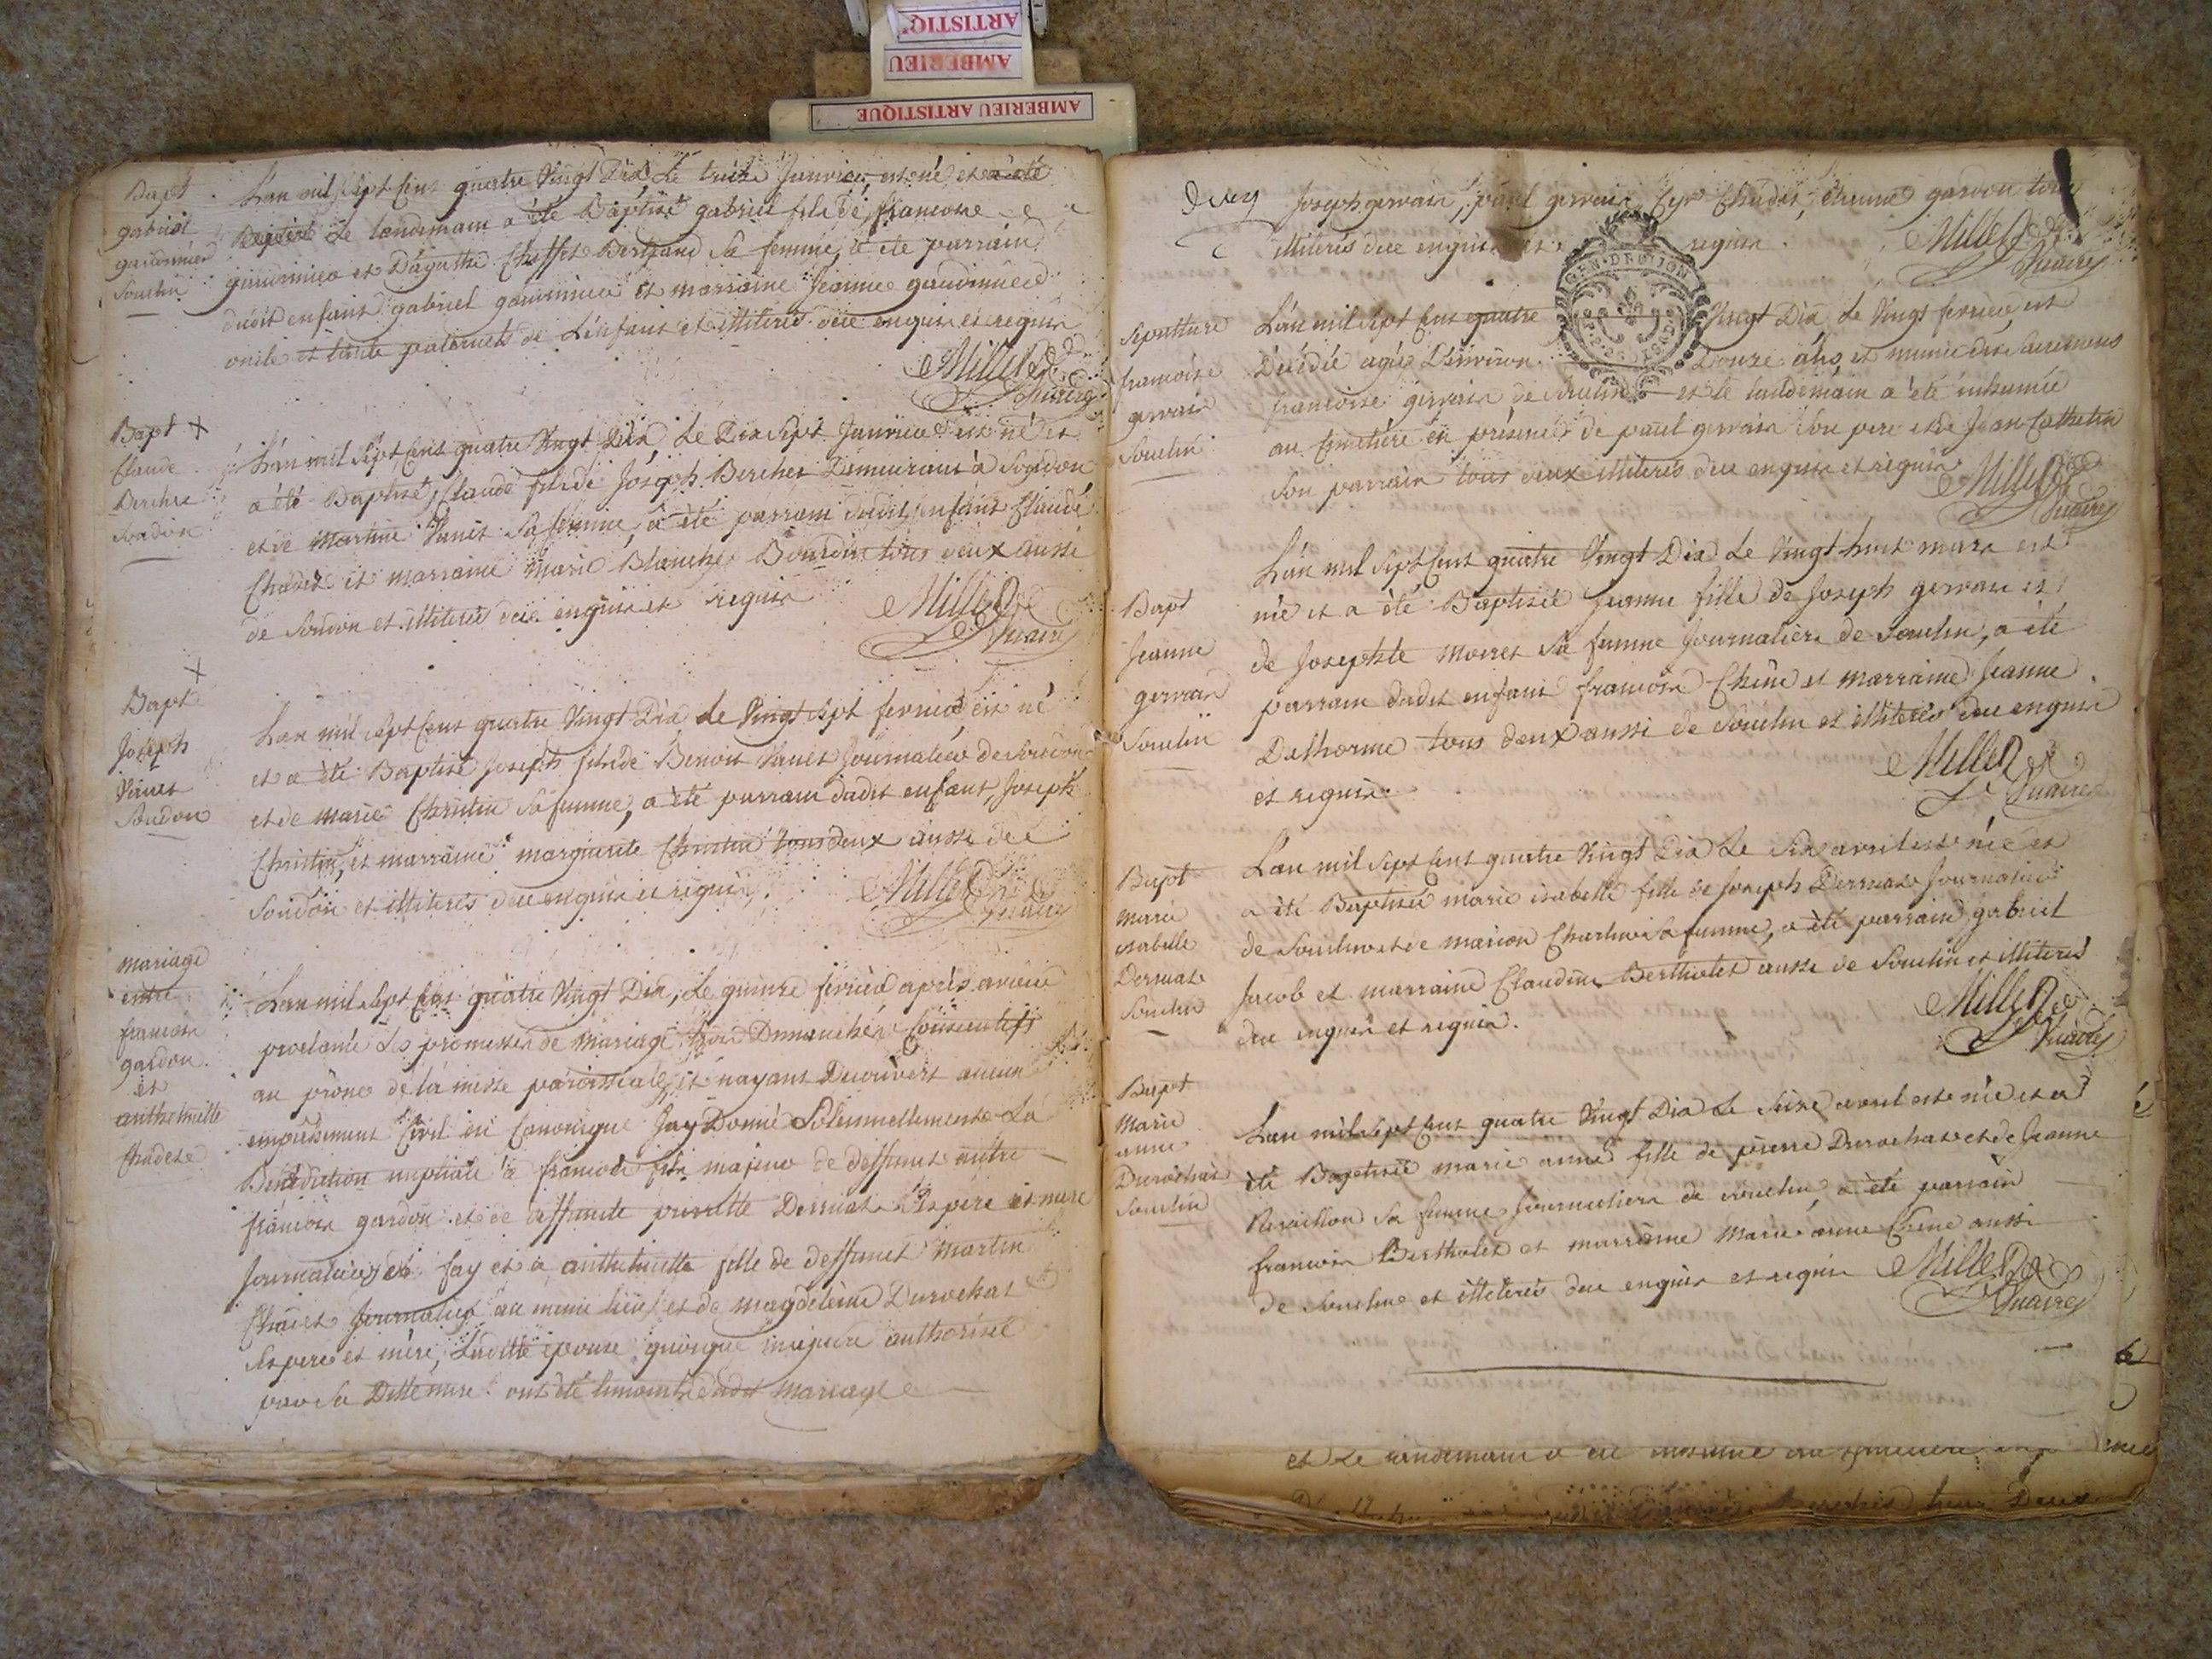 ARTISTIQ'
AMBERIEU
AMBERIEU ARTISTIQUE
Bapt
gabriel
Soudin
L'an mil sept cent quatre Vingt Dix, Le treize Janvier, est né et a été
Baptisé Le lendemain a été Baptisé gabriel fils de francois
et D'agathe Bertrand sa femme, a été parrain
dudit enfant gabriel et marraine Jeanne
oncle et tante paternels de L'enfant et illiterés de ce enquis et requis
Millet
Vicaire
Bapt +
Claude
Berchet
Soudon
L'an mil sept cent quatre Vingt Dix, Le Dix sept Janvier est né et
a été Baptisé, Claude fils de Joseph Berchet Demeurant à Soudon
et de Martine Vanet sa femme, a été parrain dudit enfant Claude
Chadet et marraine Marie Blanche Bourdin tous deux aussi
de Soudon et illiterés de ce enquis et requis
Millet
Vicaire
+
Bapt
Joseph
Vanet
Soudon
L'an mil sept cent quatre Vingt Dix Le Vingt sept fevrier est né
et a été Baptisé Joseph fils de Benoit Vanet Journalier de Soudon
et de Marie Christin sa femme, a été parrain dudit enfant, Joseph
Christin, et marraine marguerite Christin tous deux aussi de
Soudon et illiterés de ce enquis et requis.
Millet
Vicaire
mariage
entre
francois
gardon
et
anthelmette
L'an mil sept cent quatre Vingt Dix, Le quinze fevrier après avoir
proclamé Les promesses de Mariage trois Dimanches Consecutifs
au prône de la messe paroissiale, et n'ayant Decouvert aucun
empêchement Civil ni Canonique J'ay Donné Solennellement La
Bénédiction nuptiale à francois fils majeur de deffunt autre
francois gardon et de deffunte pierrette Dermat ses père et mere
Journaliers de fay et à anthelmette fille de deffunt Martin
Journalier au meme lieu et de magdeleine Durochat
ses pere et mère, Laditte épouse quoique majeure authorisée
par sa Ditte mere ont été temoins dudit Mariage
Joseph gervain, paul gervain, Cyr Chadet, Etienne gardon tous
illiterés de ce enquis et requis.
Millet
Vicaire
GEN. DE DIJON
Sepulture
francoise
gervain
Soudin
L'an mil sept cent quatre Vingt Dix Le Vingt fevrier, est
Décédée agée D'environ Douze ans, et munie des Sacremens
francoise gervain de Soudin et le lendemain a été inhumée
au Cimetiere en présence de paul gervain son pere et de Jean Cathelin
son parrain tous deux illiterés de ce enquis et requis
Millet
Vicaire
Bapt
Jeanne
gervain
Soudin
L'an mil sept cent quatre Vingt Dix Le Vingt huit mars est
née et a été Baptisée Jeanne fille de Joseph gervain et
de Josephte sa femme Journaliers de Soudin, a été
parrain dudit enfant francois Chêne et marraine Jeanne
Delhorme tous deux aussi de Soudin et illiterés de ce enquis
et requis.
Millet
Vicaire
Bapt
Marie
isabelle
Dermat
Soudin
L'an mil sept cent quatre Vingt Dix Le Six avril est née et
a été Baptisée marie isabelle fille de Joseph Dermat Journalier
de Soudin et de marion sa femme, a été parrain gabriel
Jacob et marraine Claudine Bertholet aussi de Soudin et illiterés
de ce enquis et requis.
Millet
Vicaire
Bapt
Marie
anne
Durochat
Soudin
L'an mil sept cent quatre Vingt Dix Le Seize avril est née et a
été Baptisée marie anne fille de pierre Durochat et de Jeanne
sa femme Journaliers de Soudin, a été parrain
francois Bertholet et marraine Marie anne Chene aussi
de Soudin et illiterés de ce enquis et requis
Millet
Vicaire
et Le lendemain a été inhumé au Cimetiere en